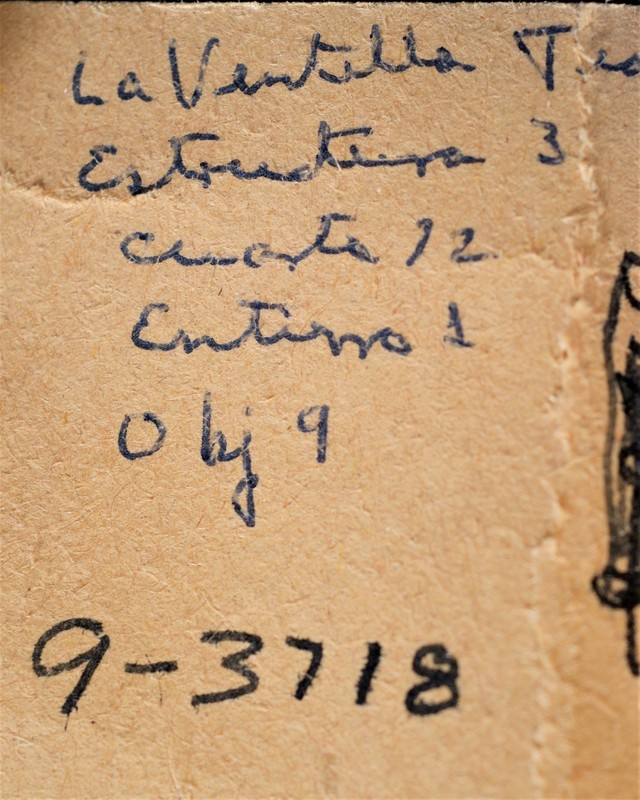 La Ventilla Teo
Estructura 3
cuarto 12
Entierro 1
Obj 9
9-3718